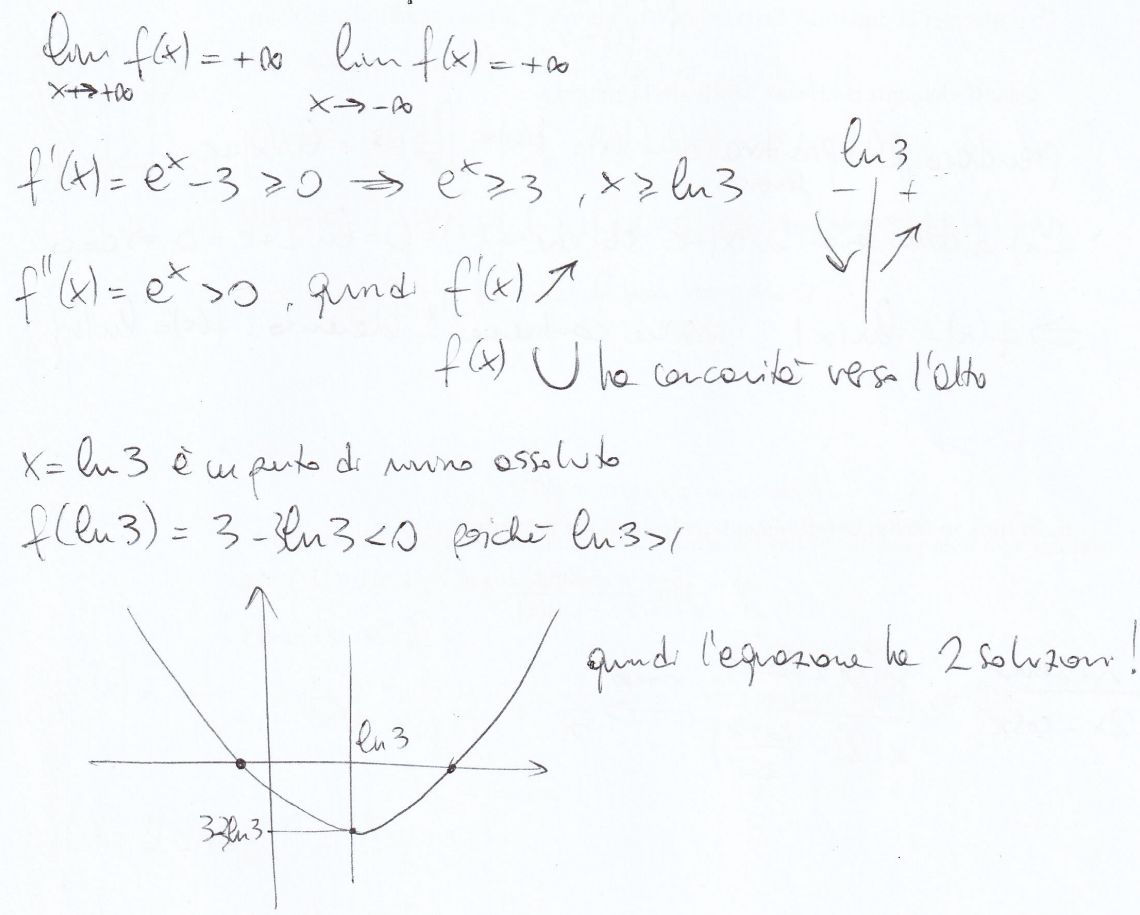 lim f(x) = +∞ lim f(x) = +∞
x→+∞ x→-∞
f'(x) = e^x - 3 ≥ 0 ⇒ e^x ≥ 3 , x ≥ ln 3
ln 3
- +
f''(x) = e^x > 0 , quindi f'(x) ↗
f(x) ∪ ha concavità verso l'alto
x = ln 3 è un punto di minimo assoluto
f(ln 3) = 3 - 3ln 3 < 0 poiché ln 3 > 1
quindi l'equazione ha 2 soluzioni!
ln 3
3-3ln3